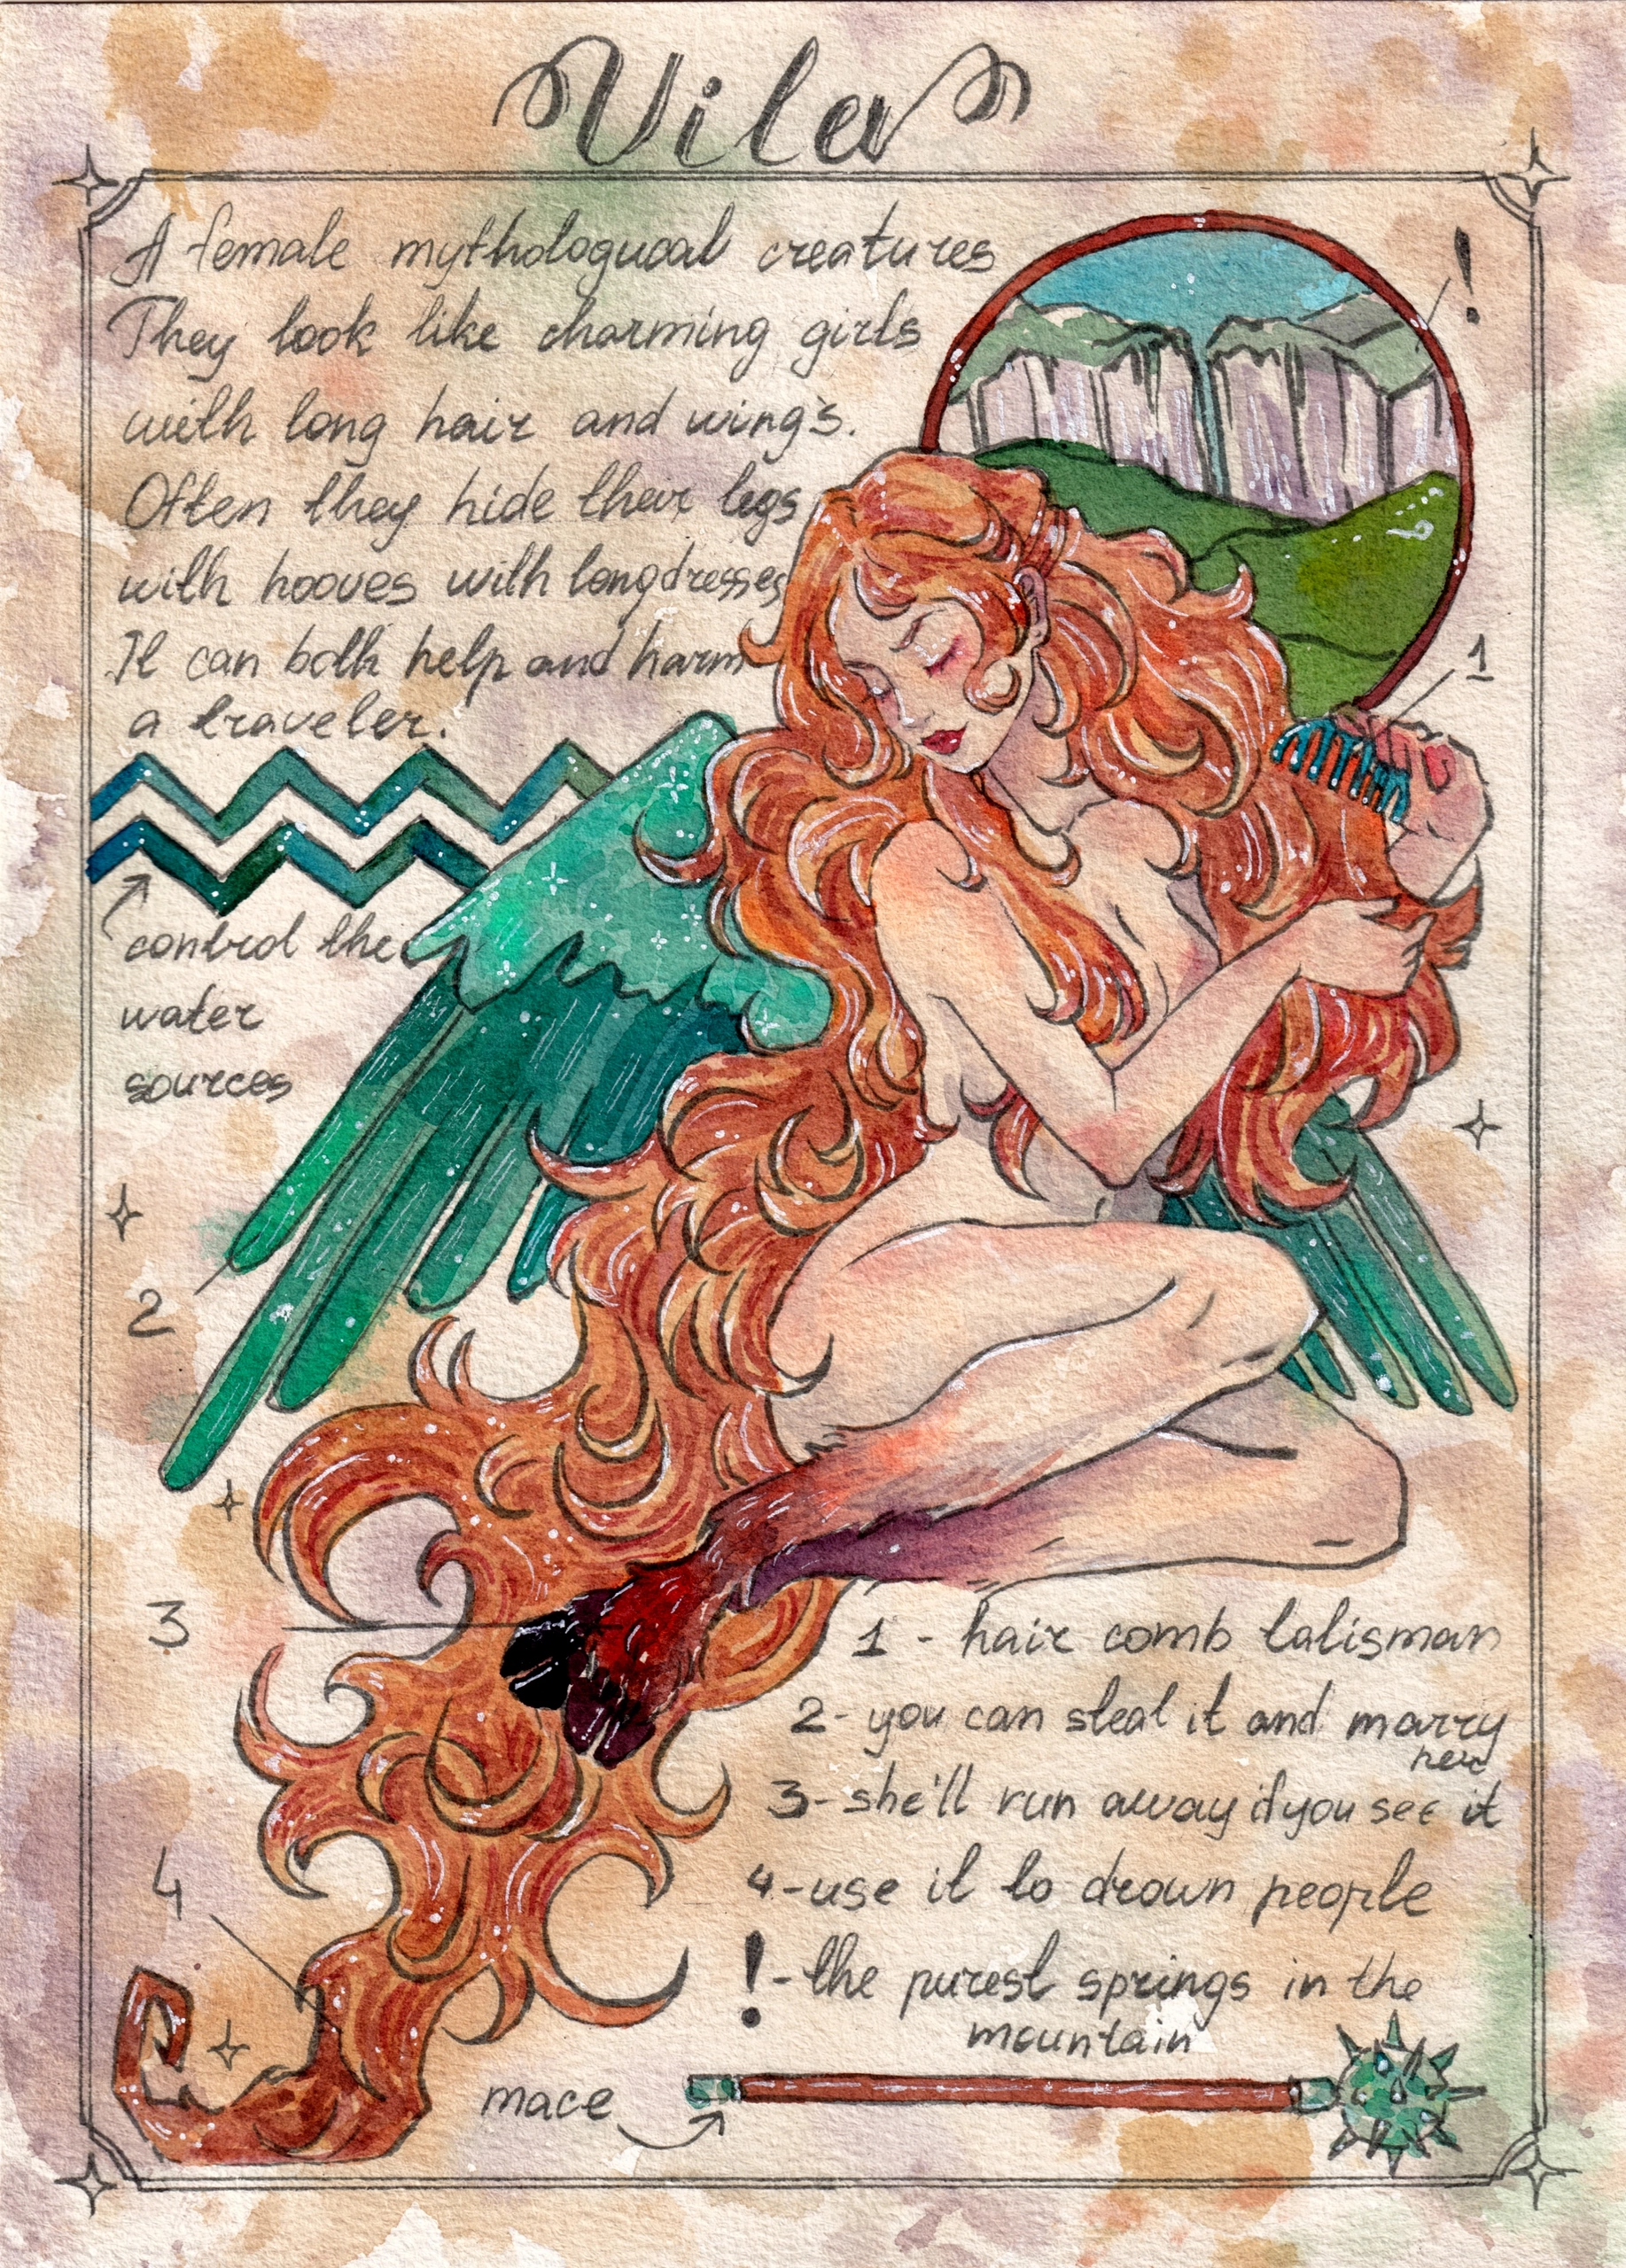 Vila
A female mythologucal creatures
They look like charming girls
with long hair and wing's.
Often they hide their legs
with hooves with long dresses
It can both help and harm
a traveler.
!
1
control the
water
sources
2
3
4
1 - hair comb talisman
2 - you can steal it and marry
her
3 - she'll run away if you see it
4 - use it to drown people
! - the purest springs in the
mountain
mace